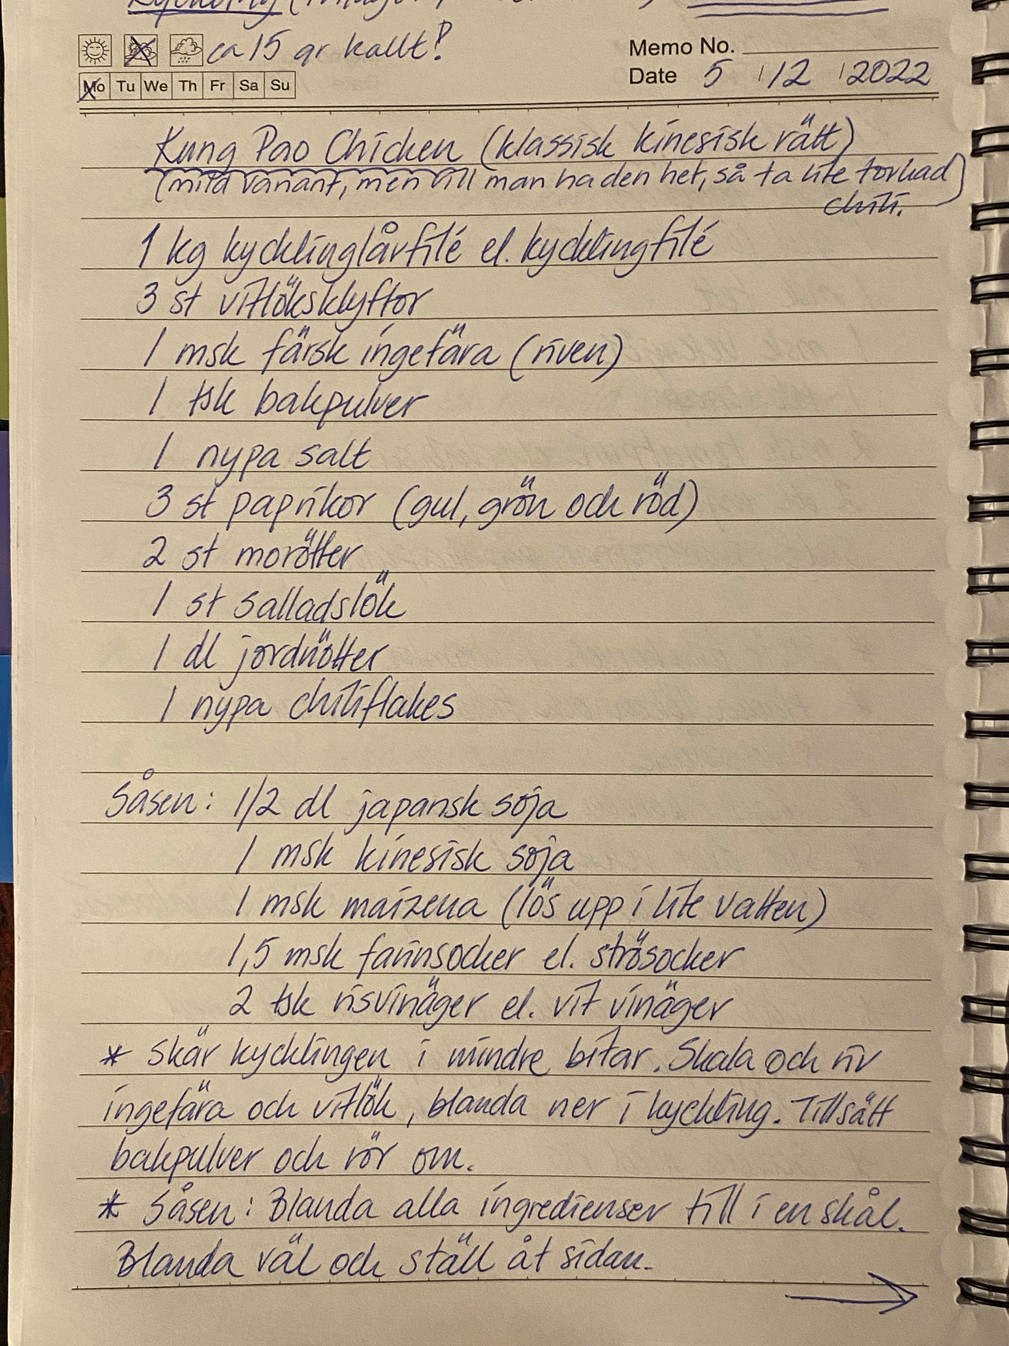 ca 15 gr kallt!
Memo No.
Date 5 / 12 / 2022
Mo Tu We Th Fr Sa Su
Kung Pao Chicken (klassisk kinesisk rätt)
(mild variant, men vill man ha den het, så ta lite torkad
chili.)
1 kg kycklinglårfilé el. kycklingfilé
3 st vitlöksklyftor
1 msk färsk ingefära (riven)
1 tsk bakpulver
1 nypa salt
3 st paprikor (gul, grön och röd)
2 st morötter
1 st salladslök
1 dl jordnötter
1 nypa chiliflakes
Såsen: 1/2 dl japansk soja
1 msk kinesisk soja
1 msk maizena (lös upp i lite vatten)
1,5 msk farinsocker el. strösocker
2 tsk risvinäger el. vit vinäger
* Skär kycklingen i mindre bitar. Skala och riv
ingefära och vitlök, blanda ner i kyckling. Tillsätt
bakpulver och rör om.
* Såsen: Blanda alla ingredienser till i en skål.
Blanda väl och ställ åt sidan.